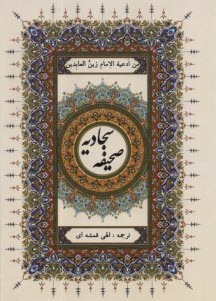 من أدعية الامام زين العابدين
صحیفه سجادیه
ترجمه : الهی قمشه ای